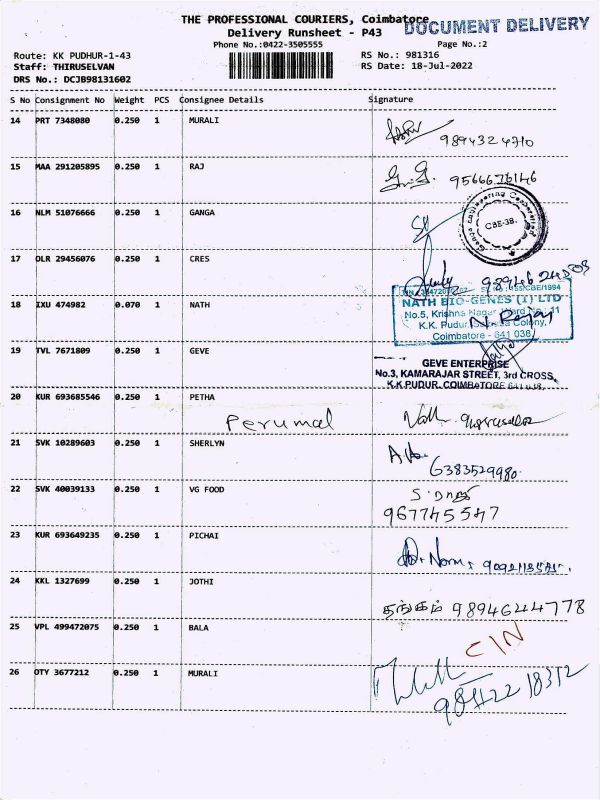 THE PROFESSIONAL COURIERS, Coimbatore
DOCUMENT DELIVERY
Delivery Runsheet - P43
Phone No.:0422-3505555
Page No.:2
Route: KK PUDHUR-1-43
RS No.: 981316
Staff: THIRUSELVAN
RS Date: 18-Jul-2022
DRS No.: DCJB98131602
S No Consignment No Weight PCS Consignee Details Signature
14 PRT 7348080 0.250 1 MURALI
9894324710
15 MAA 291205895 0.250 1 RAJ
9566676146
16 NLM 51076666 0.250 1 GANGA
CBE-38.
17 OLR 29456076 0.250 1 CRES
18 IXU 474982 0.070 1 NATH
NATH BIO-GENES (I) LTD
No.5, Krishna Nagar, Ward No. 11
K.K. Pudur, Colony,
Coimbatore - 641 038
19 TVL 7671809 0.250 1 GEVE
GEVE ENTERPRISE
No.3, KAMARAJAR STREET, 3rd CROSS,
K.K.PUDUR, COIMBATORE 641 038.
20 KUR 693685546 0.250 1 PETHA
Perumal
21 SVK 10289603 0.250 1 SHERLYN
6383529980
22 SVK 40039133 0.250 1 VG FOOD
967745547
23 KUR 693649235 0.250 1 PICHAI
24 KKL 1327699 0.250 1 JOTHI
தங்கம் 9894644778
25 VPL 499472075 0.250 1 BALA
CIN
26 OTY 3677212 0.250 1 MURALI